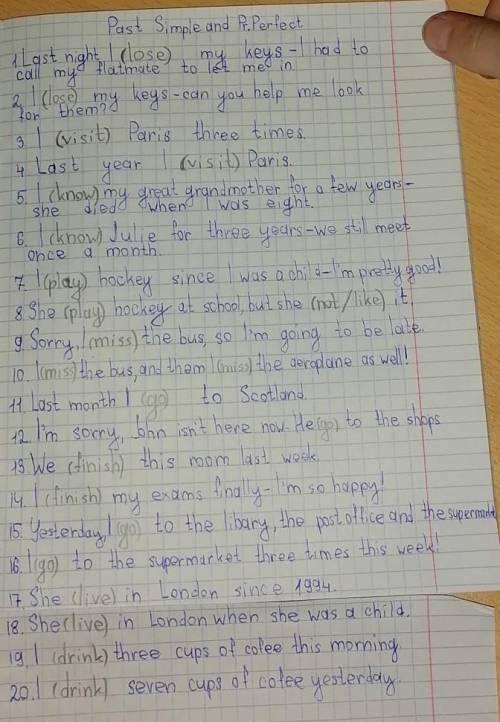 Past Simple and Pr. Perfect
1. Last night I (lose) my keys - I had to
call my flatmate to let me in.
2. I (lose) my keys - can you help me look
for them?
3 I (visit) Paris three times.
4 Last year I (visit) Paris.
5. I (know) my great grandmother for a few years -
she died when I was eight.
6. I (know) Julie for three years - we still meet
once a month.
7. I (play) hockey since I was a child - I'm pretty good!
8. She (play) hockey at school, but she (not/like) it.
9. Sorry, I (miss) the bus, so I'm going to be late.
10. I (miss) the bus, and them I (miss) the aeroplane as well!
11. Last month I (go) to Scotland.
12. I'm sorry, John isn't here now. He (go) to the shops
13 We (finish) this room last week.
14. I (finish) my exams finally - I'm so happy!
15. Yesterday, I (go) to the libary, the post office and the supermarke
16. I (go) to the supermarket three times this week!
17. She (live) in London since 1994.
18. She (live) in London when she was a child.
19. I (drink) three cups of cofee this morning.
20. I (drink) seven cups of cofee yesterday.